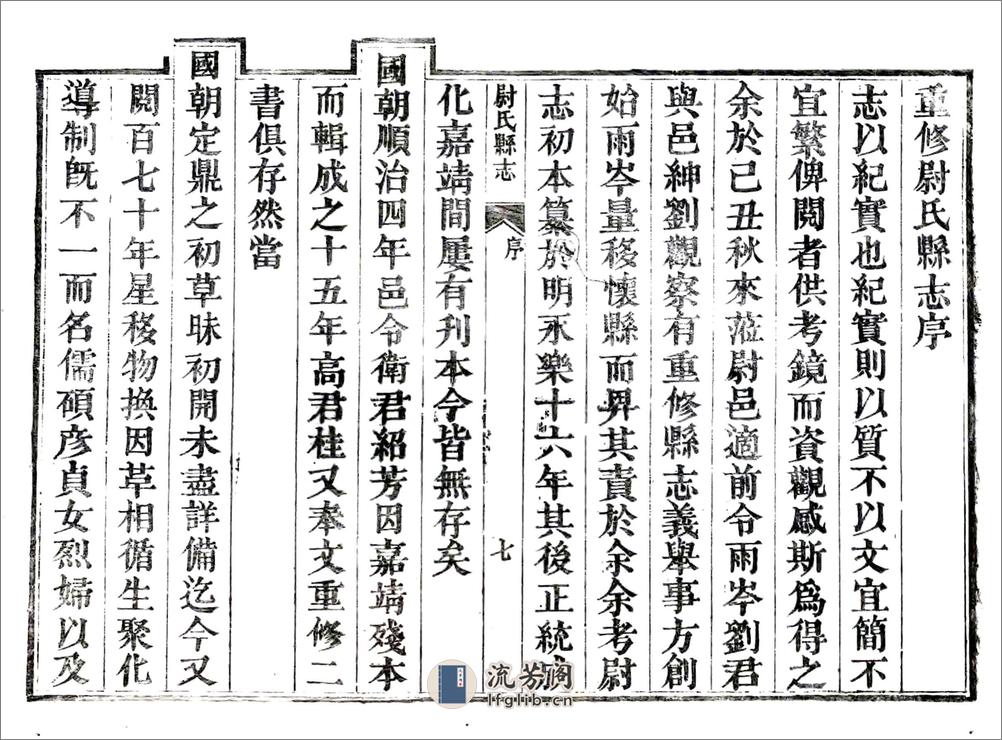 重修尉氏縣志序
志以紀實也紀實則以質不以文宜簡不
宜繁俾閱者供考鏡而資觀感斯爲得之
余於己丑秋來蒞尉邑適前令雨岑劉君
與邑紳劉觀察有重修縣志義舉事方創
始雨岑量移懷縣而畀其責於余余考尉
志初本纂於明永樂十六年其後正統
尉氏縣志
序
七
化嘉靖間屢有刊本今皆無存矣
國朝順治四年邑令衛君紹芳因嘉靖殘本
而輯成之十五年高君桂又奉文重修二
書俱存然當
國朝定鼎之初草昧初開未盡詳備迄今又
閱百七十年星移物換因革相循生聚化
導制旣不一而名儒碩彦貞女烈婦以及
流芳阁
lfglib.cn